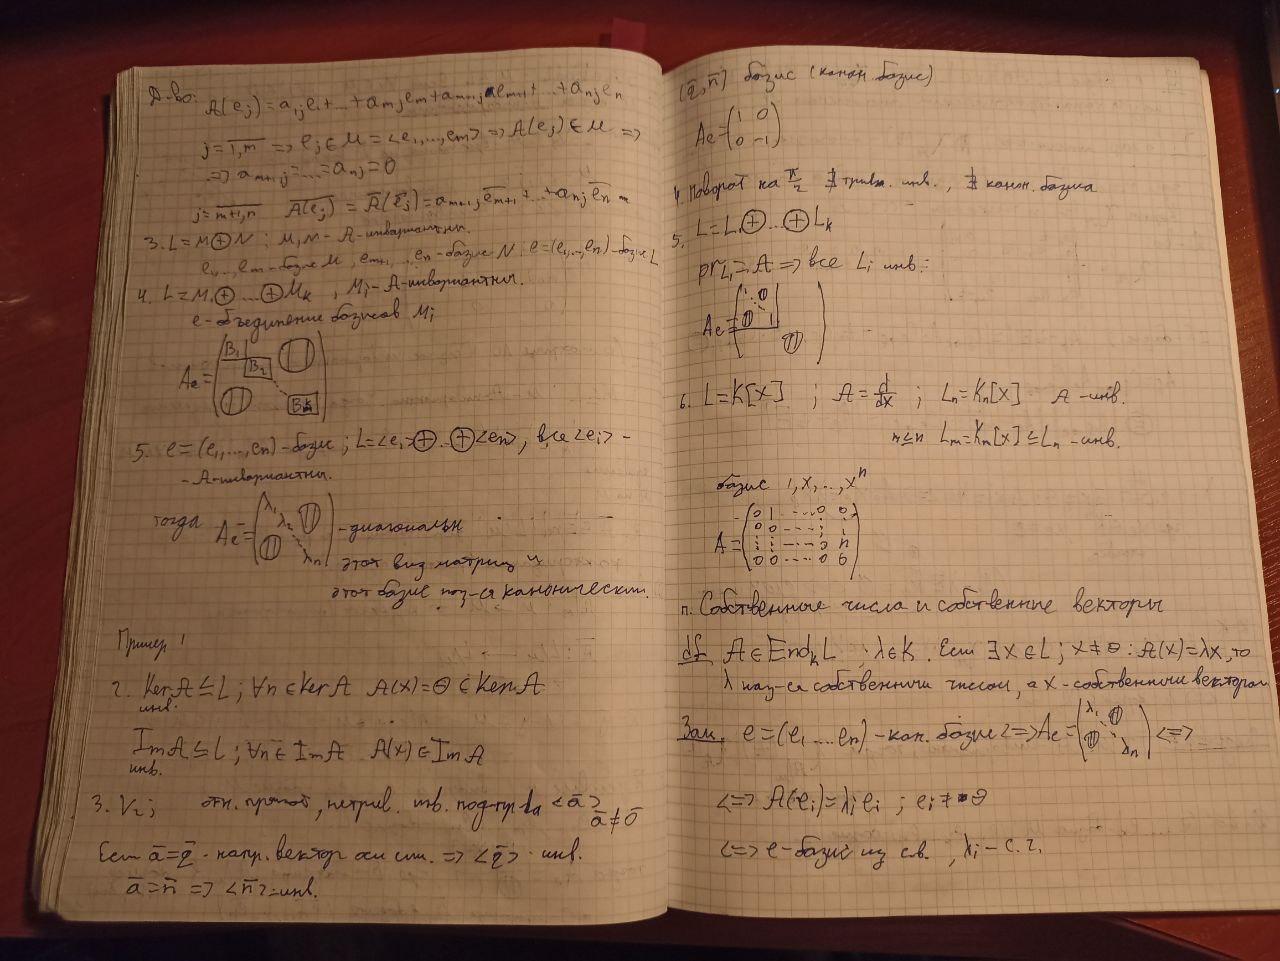 Д-во: A(ej) = a1j e1 + ... + amj em + am+1j em+1 + ... + anj en
j = 1,m => ej ∈ M = <e1, ..., em> => A(ej) ∈ M =>
=> am+1j = ... = anj = 0
j = m+1,n A(ej) = A(ej) = am+1j em+1 + ... + anj en
3. L = M ⊕ N ; M, N - A-инвариантны.
e1, ..., em - базис M, em+1, ..., en - базис N. e = (e1, ..., en) - базис L
4. L = M1 ⊕ ... ⊕ Mk , Mi - A-инвариантны.
e - объединение базисов Mi
Ae = ( B1 0
B2
0 Bk )
5. e = (e1, ..., en) - базис ; L = <e1> ⊕ ... ⊕ <en>, все <ei> -
- A-инвариантны.
тогда Ae = ( λ1 λ2 0
0 λn ) - диагональн
этот вид матриц и
этот базис наз-ся каноническим.
Пример 1
2. Ker A ≤ L ; ∀n ∈ Ker A A(x) = Θ ∈ Ker A
инв.
Im A ≤ L ; ∀n ∈ Im A A(x) ∈ Im A
инв.
3. V2 ; отн. прямой, нетрив. инв. подпр-ва <a>
a ≠ 0
Если a = q - напр. вектор оси сим. => <q> - инв.
a = n => <n> - инв.
(q, n) базис (канон. базис)
Ae = ( 1 0
0 -1 )
4. Поворот на π/2 ∄ тривиал. инв., ∄ канон. базиса
5. L = L1 ⊕ ... ⊕ Lk
prL1 = A => все Li инв.
Ae = ( 1 0
0 1
0 )
6. L = K[x] ; A = d/dx ; Ln = Kn[x] A -инв.
m ≤ n Lm = Km[x] ≤ Ln -инв.
базис 1, x, ..., x^n
A = ( 0 1 ---- 0 0
0 0 --- : :
: : ---- 0 n
0 0 ---- 0 0 )
п. Собственные числа и собственные векторы
df A ∈ EndkL ; λ ∈ K. Если ∃x ∈ L ; x ≠ Θ : A(x) = λx, то
λ наз-ся собственным числом, а x - собственным вектором
Зам. e = (e1 .... en) - кан. базис <=> Ae = ( λ1 0
0 λn ) <=>
<=> A(ei) = λi ei ; ei ≠ Θ
<=> e - базис из с.в. , λi - с.ч.